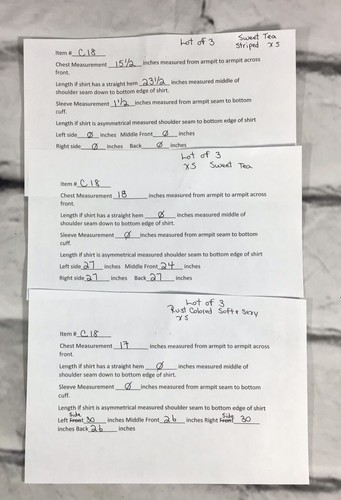 Lot of 3 Sweet Tea
Striped XS
Item # C18
Chest Measurement 15 1/2 inches measured from armpit to armpit across
front.
Length if shirt has a straight hem 23 1/2 inches measured middle of
shoulder seam down to bottom edge of shirt.
Sleeve Measurement 1 1/2 inches measured from armpit seam to bottom
cuff.
Length if shirt is asymmetrical measured shoulder seam to bottom edge of shirt
Left side Ø inches Middle Front Ø inches
Right side Ø inches Back Ø inches
Lot of 3
XS Sweet Tea
Item # C18
Chest Measurement 18 inches measured from armpit to armpit across
front.
Length if shirt has a straight hem Ø inches measured middle of
shoulder seam down to bottom edge of shirt.
Sleeve Measurement Ø inches measured from armpit seam to bottom
cuff.
Length if shirt is asymmetrical measured shoulder seam to bottom edge of shirt
Left side 27 inches Middle Front 24 inches
Right side 27 inches Back 27 inches
Lot of 3
Rust Colored Soft + Sexy
XS
Item # C18
Chest Measurement 17 inches measured from armpit to armpit across
front.
Length if shirt has a straight hem Ø inches measured middle of
shoulder seam down to bottom edge of shirt.
Sleeve Measurement Ø inches measured from armpit seam to bottom
cuff.
Length if shirt is asymmetrical measured shoulder seam to bottom edge of shirt
Left Front Side 30 inches Middle Front 26 inches Right Front Side 30
inches Back 26 inches